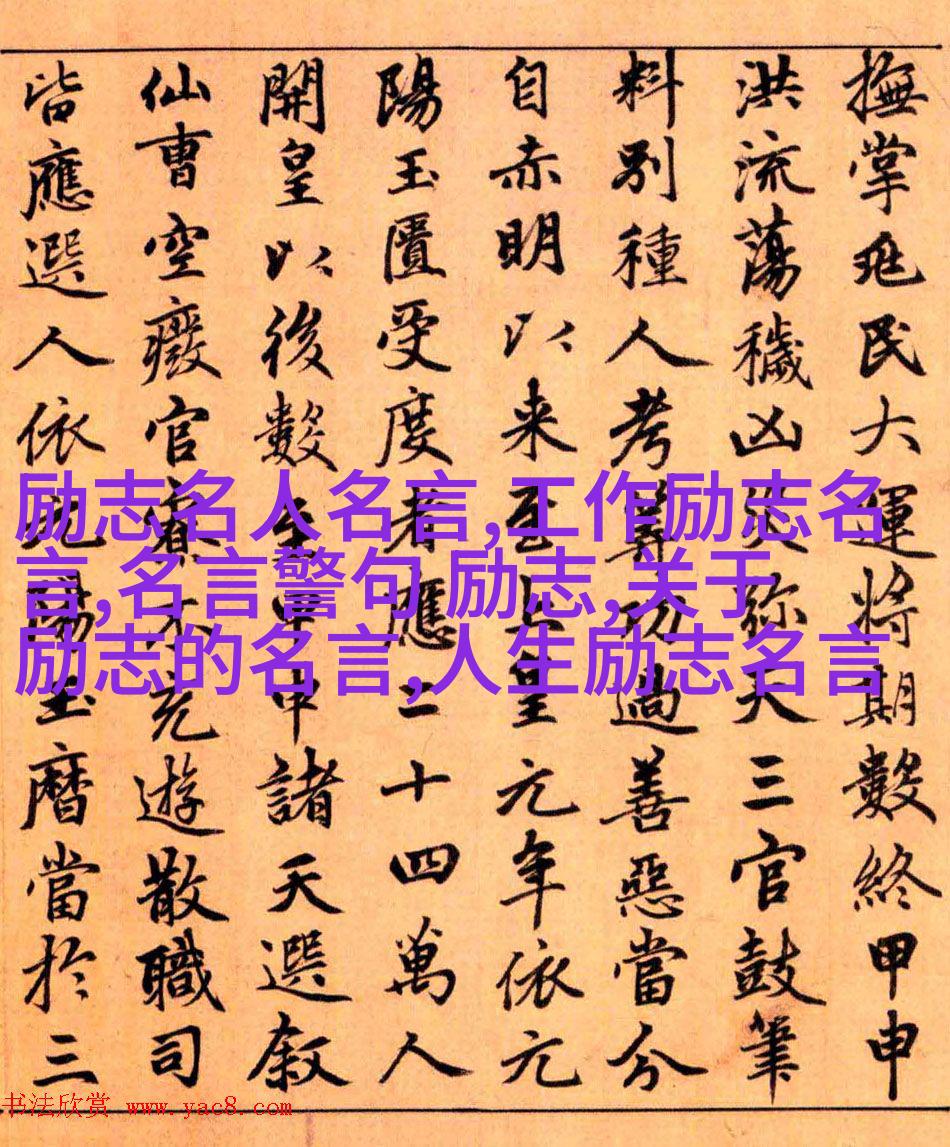 撫掌兆民大運將期數終甲申
洪流蕩穢凶灾弥天三官鼓筆
料別種人考筭功過善惡當分
自赤明以来至上皇元年依元
陽玉匱受度者應二十四萬人
開皇以後數至甲申諸天選叙
仙曹空廢官寮不充遊散職司
皆應選人依此陽玉曆當於三
励志名人名言,工作励志名
言,名言警句 励志,关于
励志的名言,人生励志名言
书法欣赏 www.yac8.com